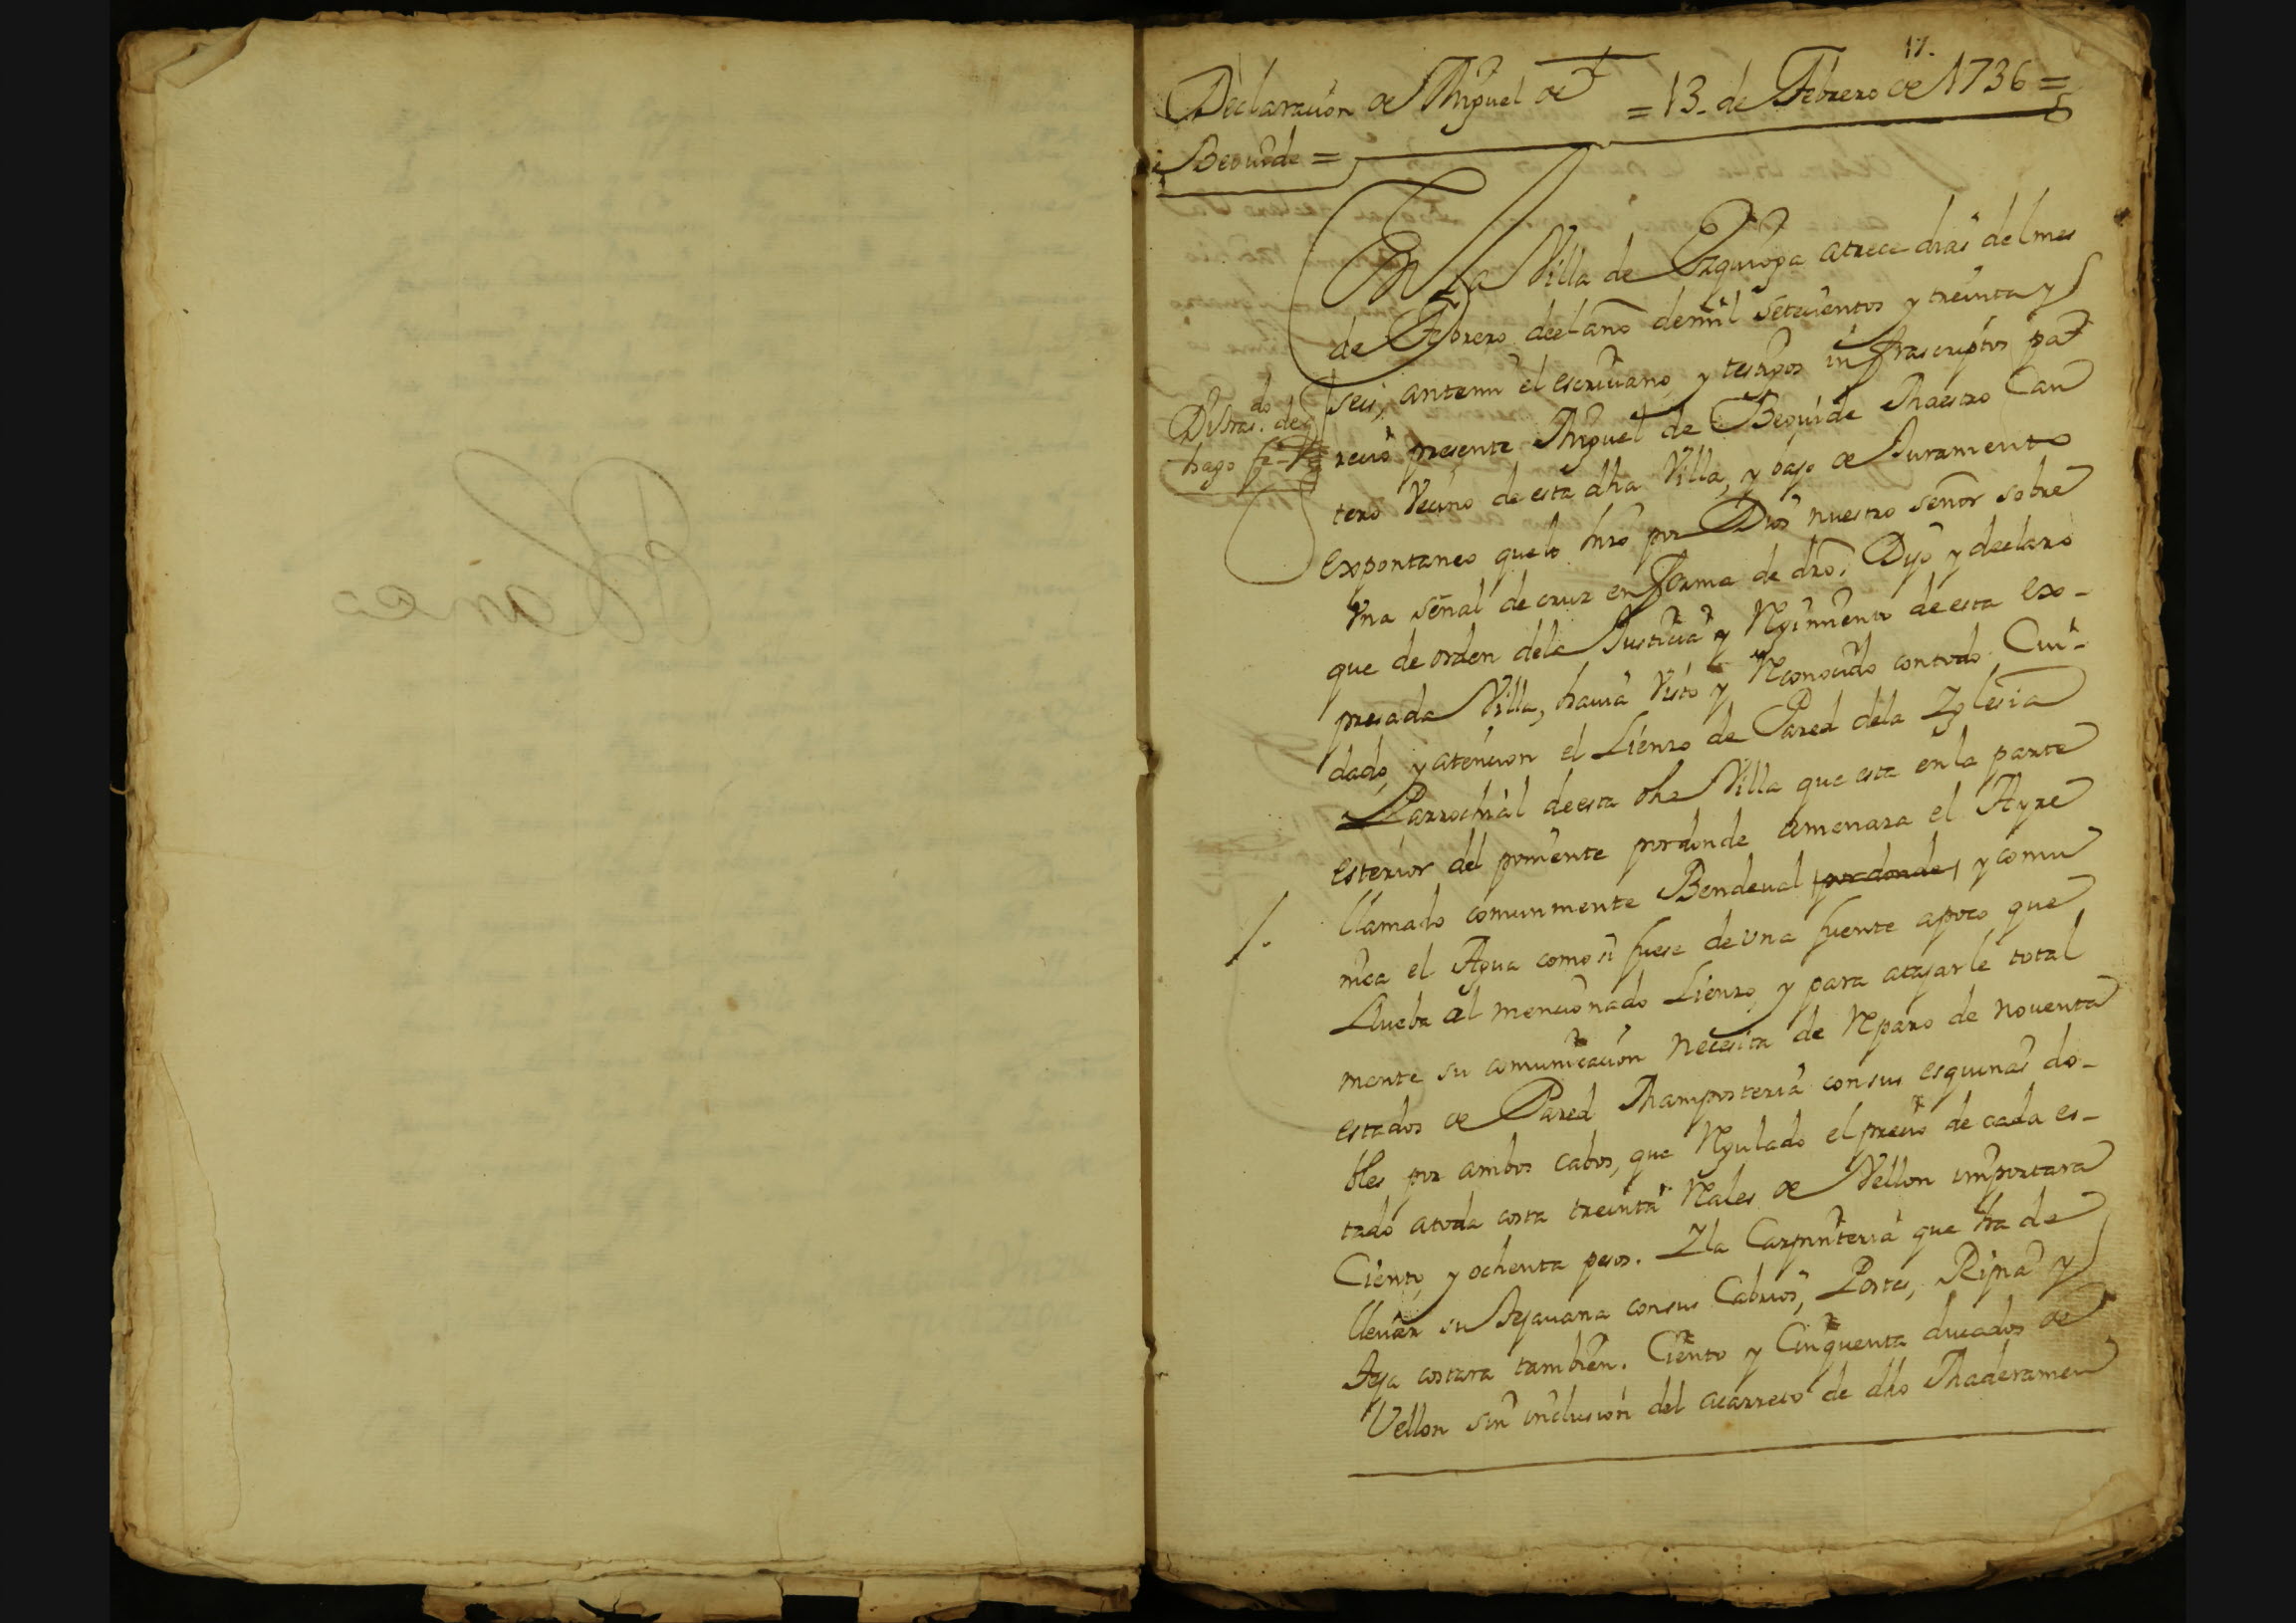 17.
Declaracion de Miguel de = 13. de Febrero de 1736 =
Beovide =
En la Villa de Ezquioga atrece dias del mes
de Febrero deel año demil setecientos y treinta y
seis, antemi el escrivano, y testigos infrascriptos pa
recio presente Miguel de Beovide Maestro Can
tero Vecino de esta dha Villa, y bajo de Juramento
expontaneo quelo hizo por Dios nuestro señor sobre
Vna señal de cruz en forma de dro. Dijo y declaro
que de orden dela Justicia y Regimiento de esta ex-
presada Villa, havia Visto y Reconocido contodo Cui-
dado, y atencion el Lienzo de Pared dela Yglesia
Parrochial de esta dha Villa que esta en la parte
esterior del poniente pordonde amenaza el Ayre
llamado comunmente Bendeval pordonde y comu
nica el Agua como si fuese de Vna fuente apoco que
Llueba al mencionado Lienzo, y para atajarle total
mente su comunicacion necesita de Reparo de noventa
estados de Pared Mamposteria consus esquinas do-
bles por ambos cabos, que Regulado el precio de cada es-
tado atoda costa treinta Reales de Vellon importara
Ciento, y ochenta pesos. Y la Carpinteria que ha de
llevar su Tejavana consus Cabrios, Postes, Ripia y
Teja costara tambien. Ciento y Cinquenta ducados de
Vellon sin inclusion del acarreto de dho Maderamen
do
hago fe
1.